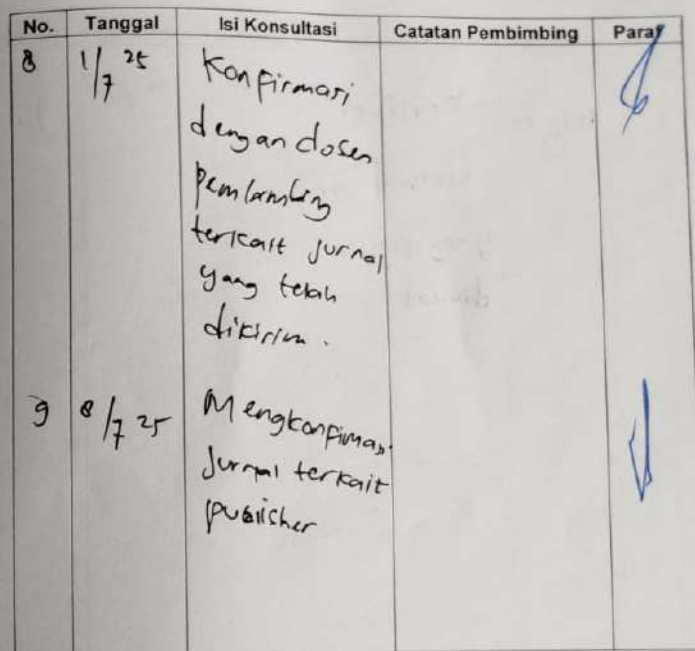 No. Tanggal Isi Konsultasi Catatan Pembimbing Paraf
8 1/7 25 Konfirmasi
dengan dosen
pembimbing
terkait jurnal
yang telah
dikirim.
9 8/7 25 Mengkonfirmasi
jurnal terkait
publisher